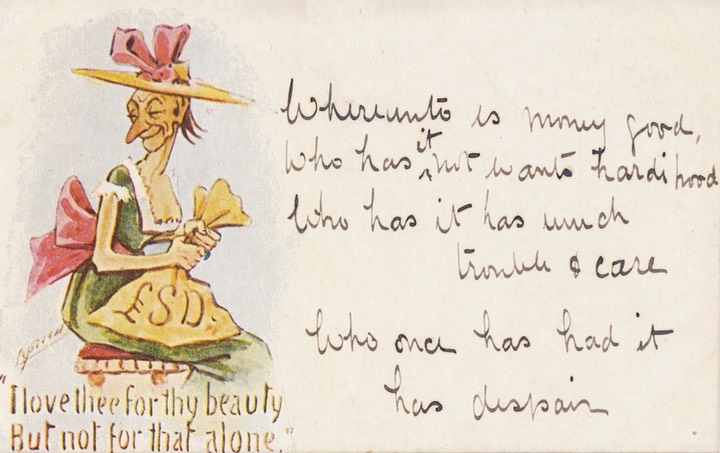 Whereunto is money good,
Who has it not wants hardihood
Who has it has much
trouble & care
Who once has had it
has despair
£SD.
"I love thee for thy beauty
But not for that alone."